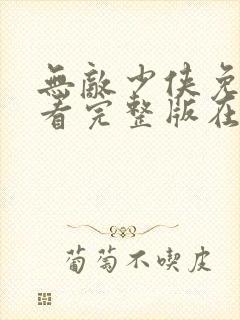 無敵少俠免
看完整版在
葡萄不喫皮